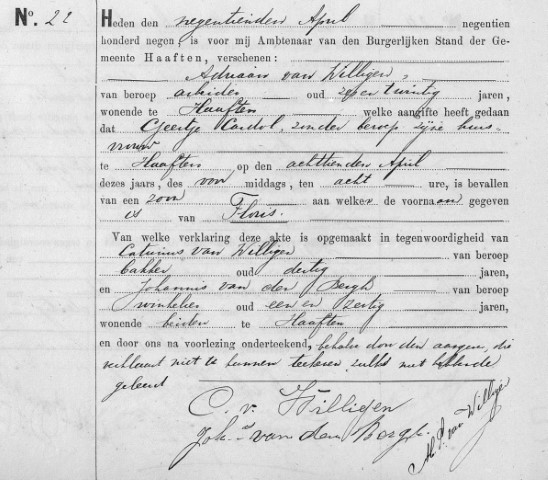 No. 22
Heden den negentienden April negentien
honderd negen, is voor mij Ambtenaar van den Burgerlijken Stand der Ge-
meente Haaften, verschenen:
Adriaan van Willigen,
van beroep arbeider oud zes en twintig jaren,
wonende te Haaften welke aangifte heeft gedaan
dat Geertje Cardol, zonder beroep zijne huis-
vrouw
te Haaften op den achttienden April
dezes jaars, des voor middags, ten acht ure, is bevallen
van een zoon aan welken de voornaam gegeven
is van Floris.
Van welke verklaring deze akte is opgemaakt in tegenwoordigheid van
van Willigen van beroep
bakker oud dertig jaren,
en Johannis van den Bergh van beroep
winkelier oud een en jaren,
wonende beiden te Haaften
en door ons na voorlezing onderteekend, behalve door den aangever, die
verklaart niet te kunnen teekenen zulks niet hebbende
geleerd
C. v. Willigen
Joh.s van den Bergh.
van Willigen